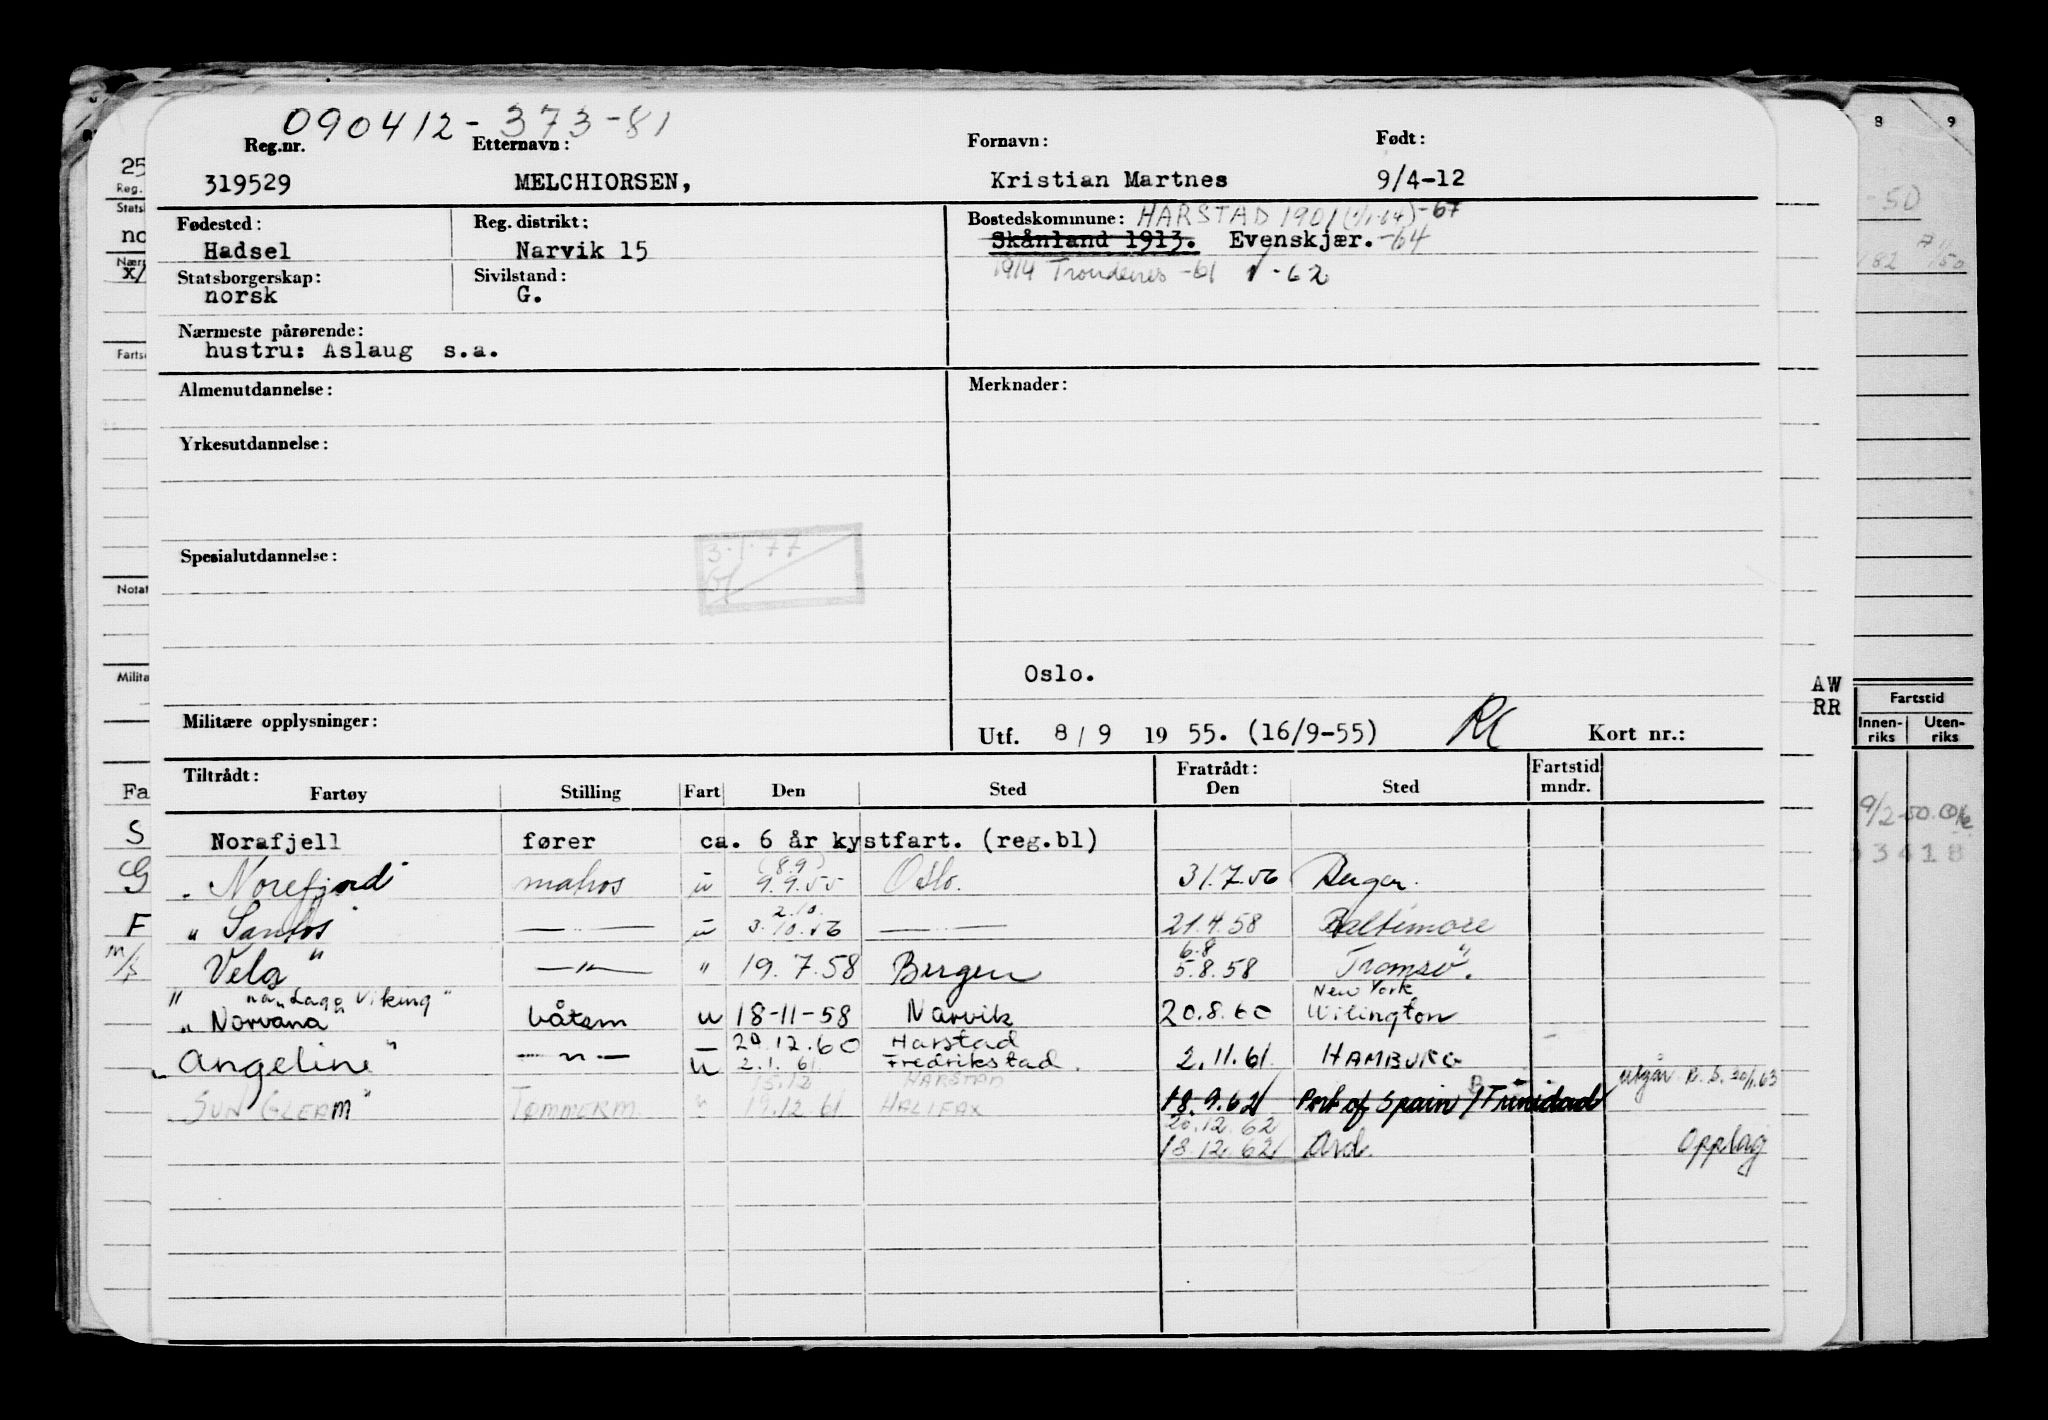 090412-373-81
Reg.nr. Etternavn: Fornavn: Født:
319529 MELCHIORSEN, Kristian Martnes 9/4-12
Fødested: Reg. distrikt: Bostedskommune: HARSTAD 1901 (1/1-64) -67
Hadsel Narvik 15 Skånland 1913. Evenskjær. -64
Statsborgerskap: Sivilstand: 1914 Trondenes -61 -62
norsk G.
Nærmeste pårørende:
hustru: Aslaug s.a.
Almenutdannelse: Merknader:
Yrkesutdannelse:
3.1.77
Spesialutdannelse:
Oslo.
Militære opplysninger: Utf. 8/9 1955. (16/9-55) Kort nr.:
Tiltrådt: Fratrådt: Fartstid
Fartøy Stilling Fart Den Sted Den Sted mndr.
Norafjell fører ca. 6 år kystfart. (reg.bl)
(8.9)
" Norefjord" matros u 9.9.55 Oslo. 31.7.56 
2.10.
" Santos" — " — u 3.10.56 — " — 21.4.58 Baltimore
6.8
m/s Vela " — " — " 19.7.58 Bergen 5.8.58 Tromsø".
" nå "Lage Viking" New York
" Norvana" båtsm u 18-11-58 Narvik 20.8.60 Wilington
29.12.60 Harstad
" Angeline" — " — u 2.1.61 Fredrikstad. 2.11.61 HAMBURG
15.12 HARSTAD utgår R.S. 30/1.63
" SUN GLEAM" TØMMERM. " 19.12.61 HALIFAX 18.9.62 Port of Spain / Trinidad
20.12.62
18.12.62 Ard. Opplag
25
Reg.
Statsb
no
Nærm
x/
Fartso
Notat
Milita
Fa
S
G
F
8 9
-50
82
AW
RR
Fartstid
Innen-riks Uten-riks
9/2-50.
3418